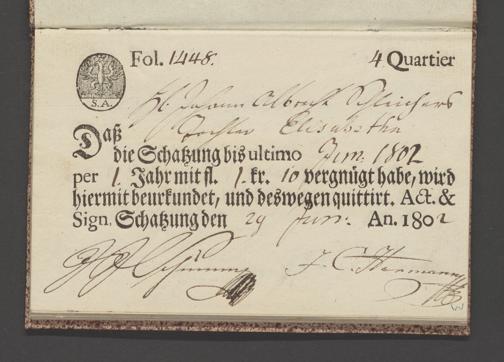 Fol. 1448. 4 Quartier
S. A.
Johann Albrecht Schleichers
Tochter Elisabetha
Daß
die Schatzung bis ultimo Jun. 1802
per 1. Jahr mit fl. 1. kr. 10 vergnügt habe, wird
hiermit beurkundet, und deswegen quittirt. Act. &
Sign. Schatzung den 29 Jun. An. 1802
J. C. Hermann